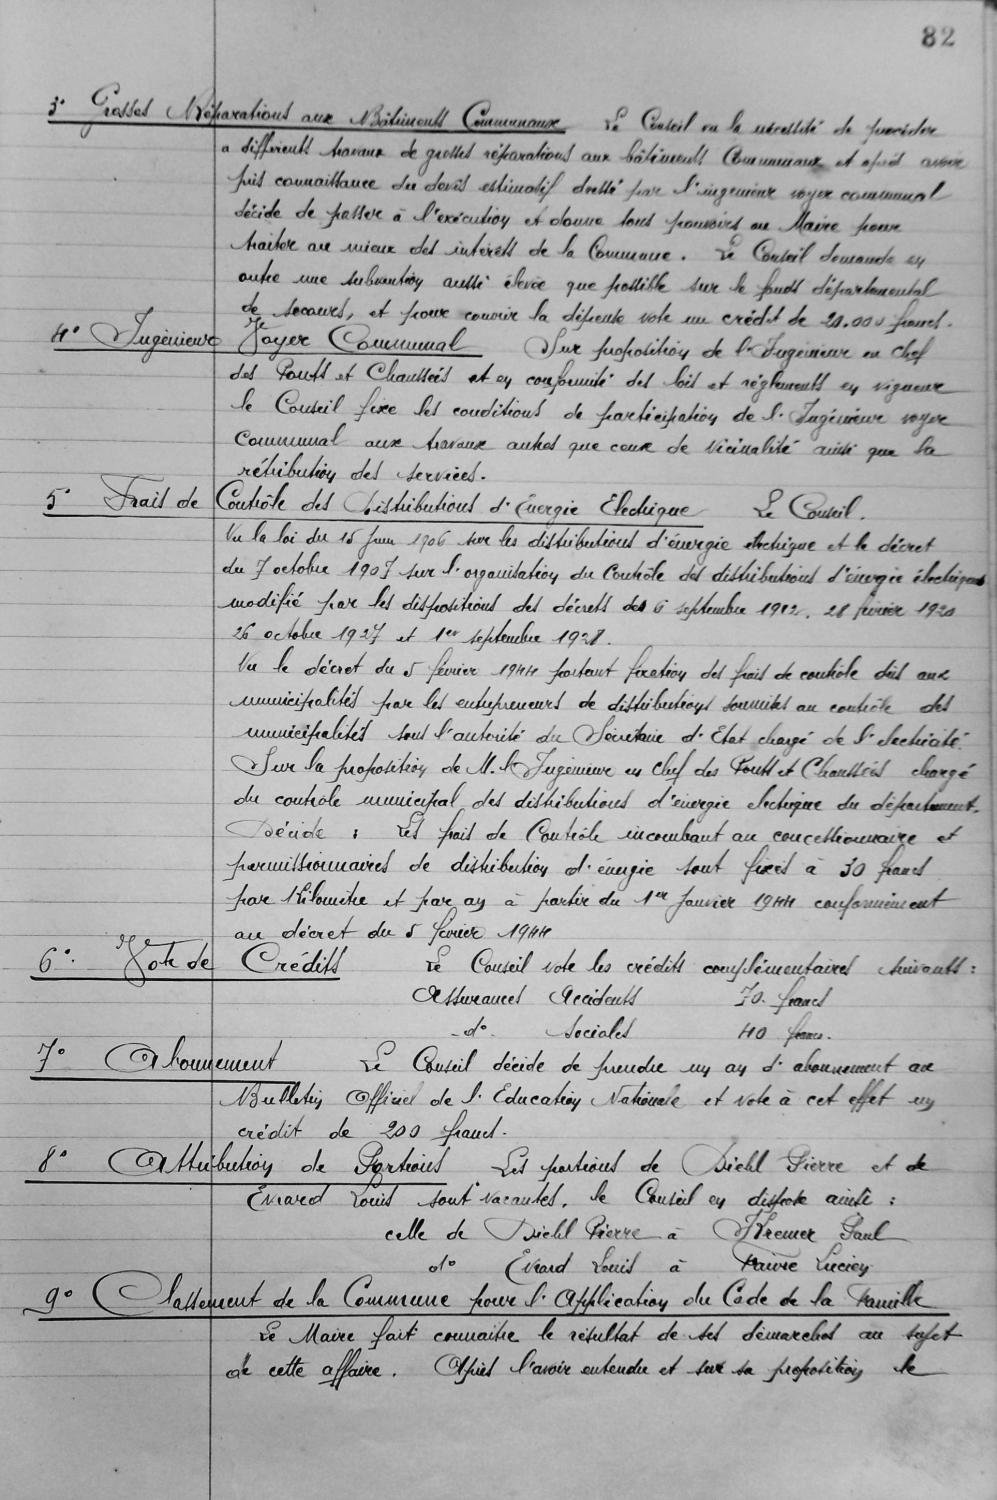 82
3° Grosses Réparations aux Bâtiments Communaux Le Conseil vu la nécessité de procéder
a différents travaux de grosses réparations aux bâtiments Communaux et après avoir
pris connaissance du devis estimatif dressé par l'ingénieur voyer communal
décide de passer à l'exécution et donne tous pouvoirs au Maire pour
traiter au mieux des intérêts de la Commune. Le Conseil demande en
outre une subvention aussi élevée que possible sur le fonds départemental
de secours, et pour couvrir la dépense vote un crédit de 20.000 francs.
4° Ingénieur Voyer Communal Sur proposition de l'Ingénieur en Chef
des Ponts et Chaussées et en conformité des lois et règlements en vigueur
le Conseil fixe les conditions de participation de l'Ingénieur voyer
Communal aux travaux autres que ceux de vicinalité ainsi que la
rétribution des services.
5° Frais de Contrôle des Distributions d'Energie Electrique Le Conseil.
Vu la loi du 15 Juin 1906 sur les distributions d'énergie électrique et le décret
du 7 octobre 1907 sur l'organisation du Contrôle des distributions d'énergie électrique
modifié par les dispositions des décrets des 6 septembre 1912, 28 février 1920
26 octobre 1927 et 1er septembre 1928.
Vu le décret du 5 février 1944 portant fixation des frais de contrôle dûs aux
municipalités par les entrepreneurs de distributions soumises au contrôle des
municipalités sous l'autorité du Secrétaire d'Etat chargé de l'électricité.
Sur la proposition de M. l'Ingénieur en Chef des Ponts et Chaussées chargé
du contrôle municipal des distributions d'énergie electrique du département.
Décide : Les frais de Contrôle incombant au concessionnaire et
permissionnaires de distribution d'énergie sont fixés à 30 francs
par Kilomètre et par an à partir du 1er Janvier 1944 conformément
au décret du 5 février 1944
6°. Vote de Crédits Le Conseil vote les crédits complémentaires suivants :
Assurances Accidents 70. francs
d° Sociales 40 francs.
7° Abonnement Le Conseil décide de prendre un an d'abonnement au
Bulletin Officiel de l'Education Nationale et vote à cet effet un
crédit de 200 francs.
8° Attribution de Portions Les portions de Diehl Pierre et de
Evrard Louis sont vacantes, le Conseil en dispose ainsi :
celle de Diehl Pierre à Kremer Paul
d° Evrard Louis à Faivre Lucien
9° Classement de la Commune pour l'Application du Code de la Famille
Le Maire fait connaitre le résultat de ses démarches au sujet
de cette affaire. Après l'avoir entendu et sur sa proposition le